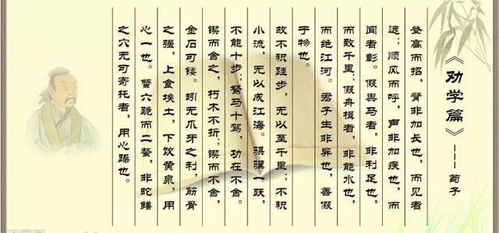 《劝学篇》——荀子
登高而招，臂非加长也，而见者
远；顺风而呼，声非加疾也，而
闻者彰。假舆马者，非利足也，
而致千里；假舟楫者，非能水也，
而绝江河。君子生非异也，善假
于物也。
故不积跬步，无以至千里；不积
小流，无以成江海。骐骥一跃，
不能十步；驽马十驾，功在不舍。
锲而舍之，朽木不折；锲而不舍，
金石可镂。蚓无爪牙之利，筋骨
之强，上食埃土，下饮黄泉，用
心一也。蟹六跪而二螯，非蛇鳝
之穴无可寄托者，用心躁也。